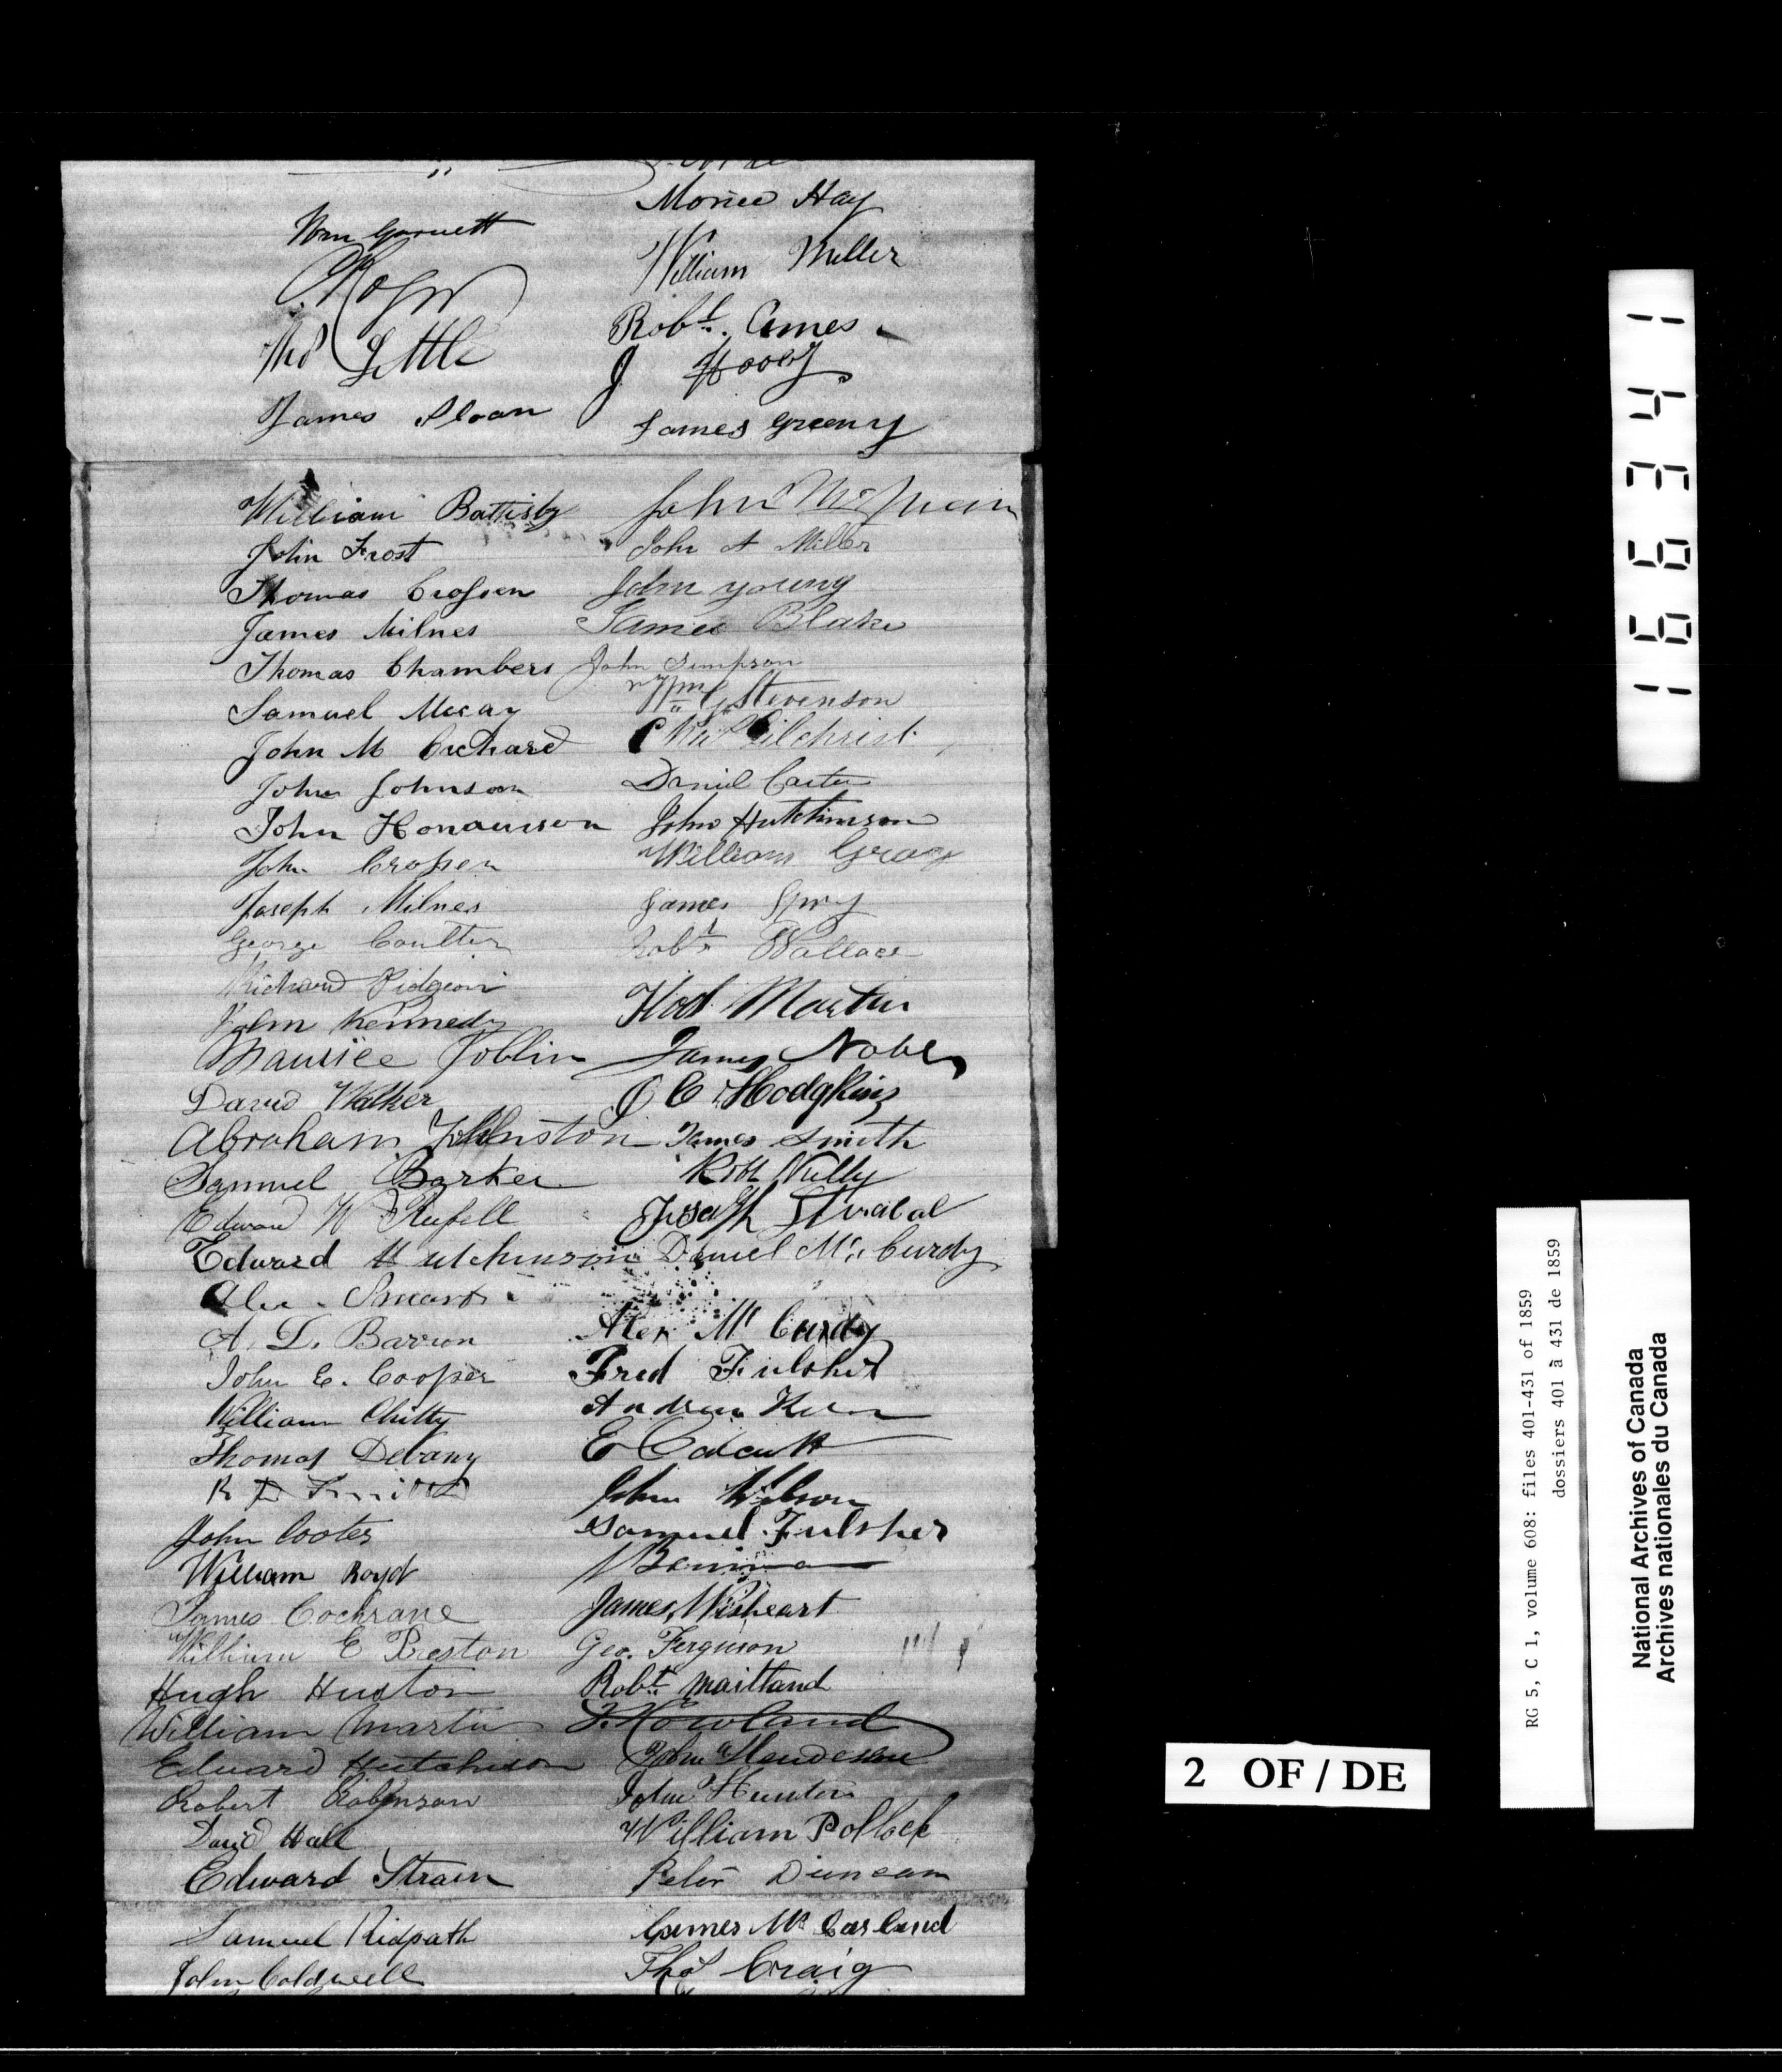 Wm Garnett
Thos Little
James Sloan
William Battisby
John Frost
Thomas Crossen
James Milnes
Thomas Chambers
Samuel Mccay
John M
John Johnson
John
John Crossen
Joseph Milnes
George Coulter
Richard Pidgeon
John Kennedy
Maurice Joblin
David Walker
Abraham Johnston
Samuel Barker
Edward W Russell
Edward Hutchinson
Alex. Smart
A. D. Barron
John E. Cooper
William Chitty
Thomas Debany
R D Smith
John Cootes
William Boyd
James Cochrane
William E Preston
Hugh Huston
William Martin
Edward Hutchison
Robert Robinson
David Hall
Edward Strain
Samuel Ridpath
John Coldwell
Hay
William Miller
Robt. Ames
J
James Greeny
John
John A Miller
John young
James Blake
John Simpson
Wm G Stevenson
Gilchrist
Daniel Carter
John Hutchinson
William Gray
James Spry
Robt Wallace
Martin
James Noble
J C Hodgkins
James Smith
Robt
Joseph
Daniel Mc. Curdy
Alex Mc Curdy
Fred Fulsher
Andrew Kerr
E Calcutt
John Wilson
Samuel Fulsher
James Wisheart
Geo. Ferguson
Robt. Maitland
J. Howland
John Henderson
John Hunter
William Pollock
Peter Duncan
James Mc Casland
Thos Craig
166341
2 OF / DE
RG 5, C 1, volume 608: files 401-431 of 1859
dossiers 401 à 431 de 1859
National Archives of Canada
Archives nationales du Canada